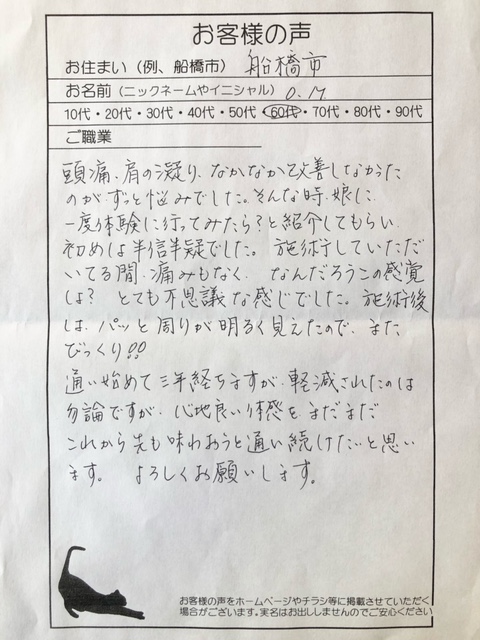 お客様の声
お住まい（例、船橋市） 船橋市
お名前（ニックネームやイニシャル） O. M
10代・20代・30代・40代・50代・60代・70代・80代・90代
ご職業
頭痛、肩の凝り、なかなか改善しなかった
のが、ずっと悩みでした。そんな時、娘に
一度体験に行ってみたら？と紹介してもらい
初めは半信半疑でした。施術していただ
いてる間、痛みもなく、なんだろうこの感覚
は？ とても不思議な感じでした。施術後
は、パッと周りが明るく見えたので、また
びっくり!!
通い始めて三年経ちますが、軽減されたのは
勿論ですが、心地良い体感を、まだまだ
これから先も味わおうと通い続けたいと思い
ます。 よろしくお願いします。
お客様の声をホームページやチラシ等に掲載させていただく
場合がございます。実名はお出ししませんのでご安心ください